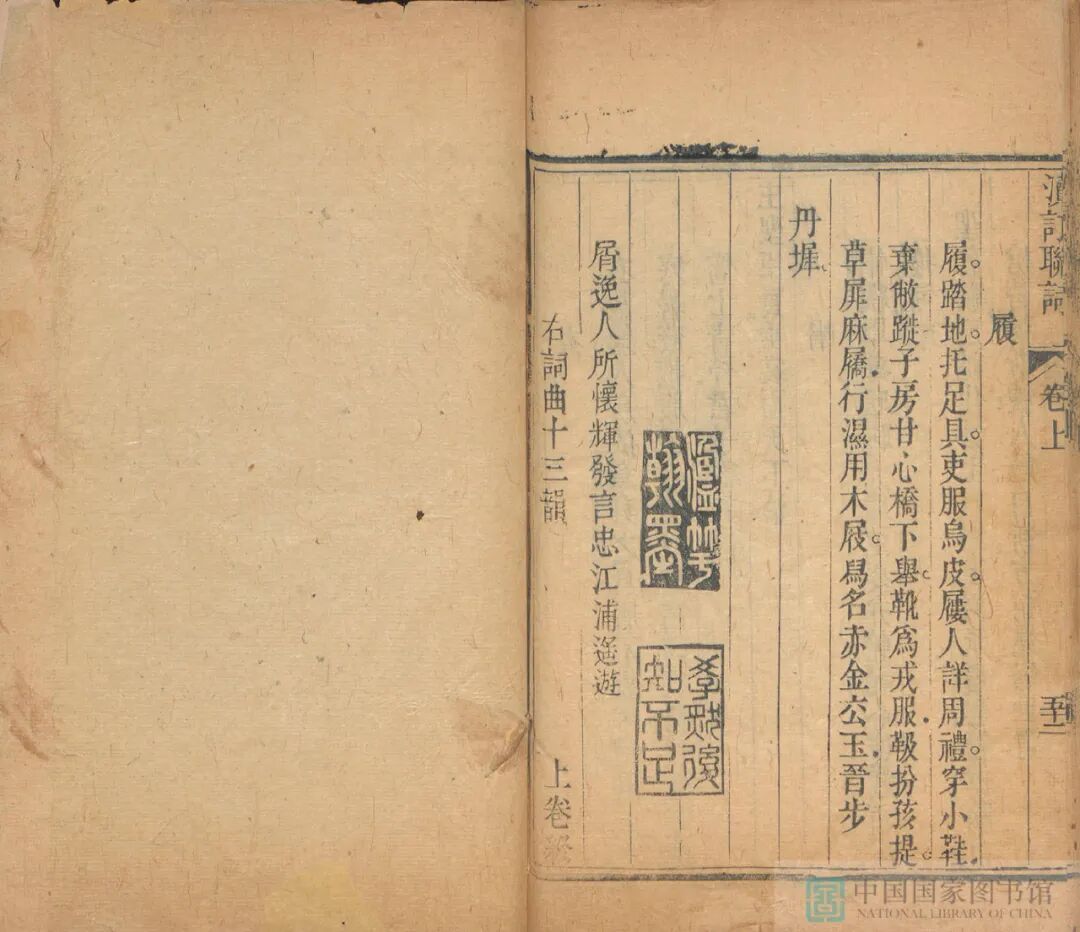 訂聯
卷上
履
履踏地托足具吏服烏皮屨人詳周禮穿小鞋
棄敝蹝子房甘心橋下舉靴爲戎服靸扮孩提
草屝麻屩行濕用木屐舄名赤金公玉晉步
丹墀
翰墨
學然後知不足
屑逸人所懷輝發言忠江浦遥遊
右詞曲十三韻 上卷終
中国国家图书馆
NATIONAL LIBRARY OF CHINA